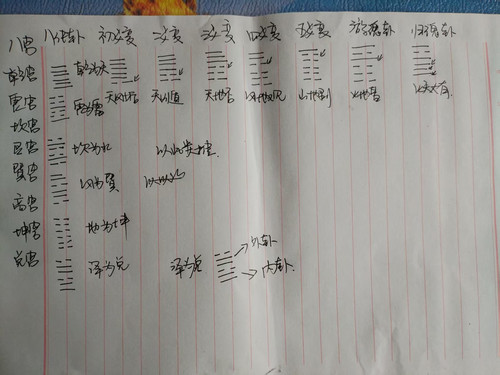 八宫 八纯卦 初爻变 二爻变 三爻变 四爻变 五爻变 游魂卦 归魂卦
乾宫 乾为天
震宫 天风姤 天山遁 天地否 风地观 山地剥 火地晋 火天大有
坎宫
艮宫 坎为水 以此类推
巽宫 风为巽
离宫
坤宫 地为坤
兑宫 泽为兑 泽为兑 外卦
内卦